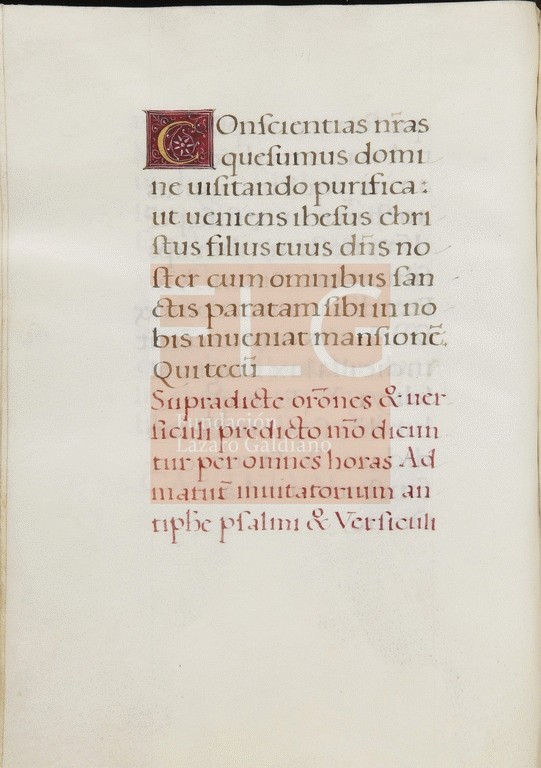 COnscientias nr̃as
quesumus domi
ne uisitando purifica:
ut ueniens ihesus chri
stus filius tuus dñs no
ster cum omnibus san
ctis paratam sibi in no
bis inueniat mansionẽ.
Qui tecũ
Supradicte orõnes & uer
siculi predicto mõ dicun
tur per omnes horas Ad
matut̃ inuitatorium an
tiphe psalmi & Versiculi
FLG
Fundación
Lázaro Galdiano